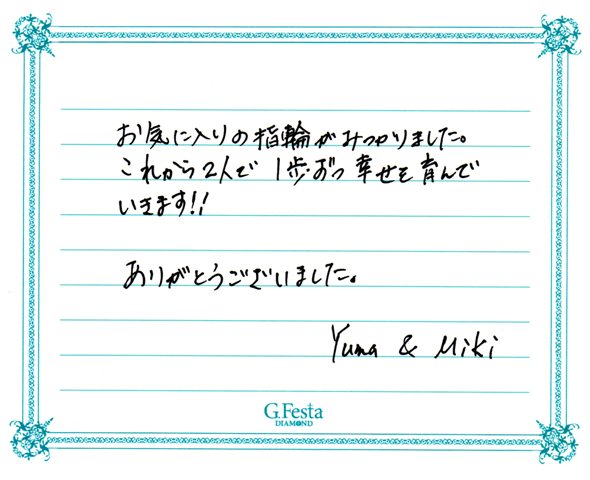 お気に入りの指輪がみつかりました。
これから2人で 1歩ずつ 幸せを育んで
いきます!!
ありがとうございました。
Yuma & Miki
G.Festa
DIAMOND